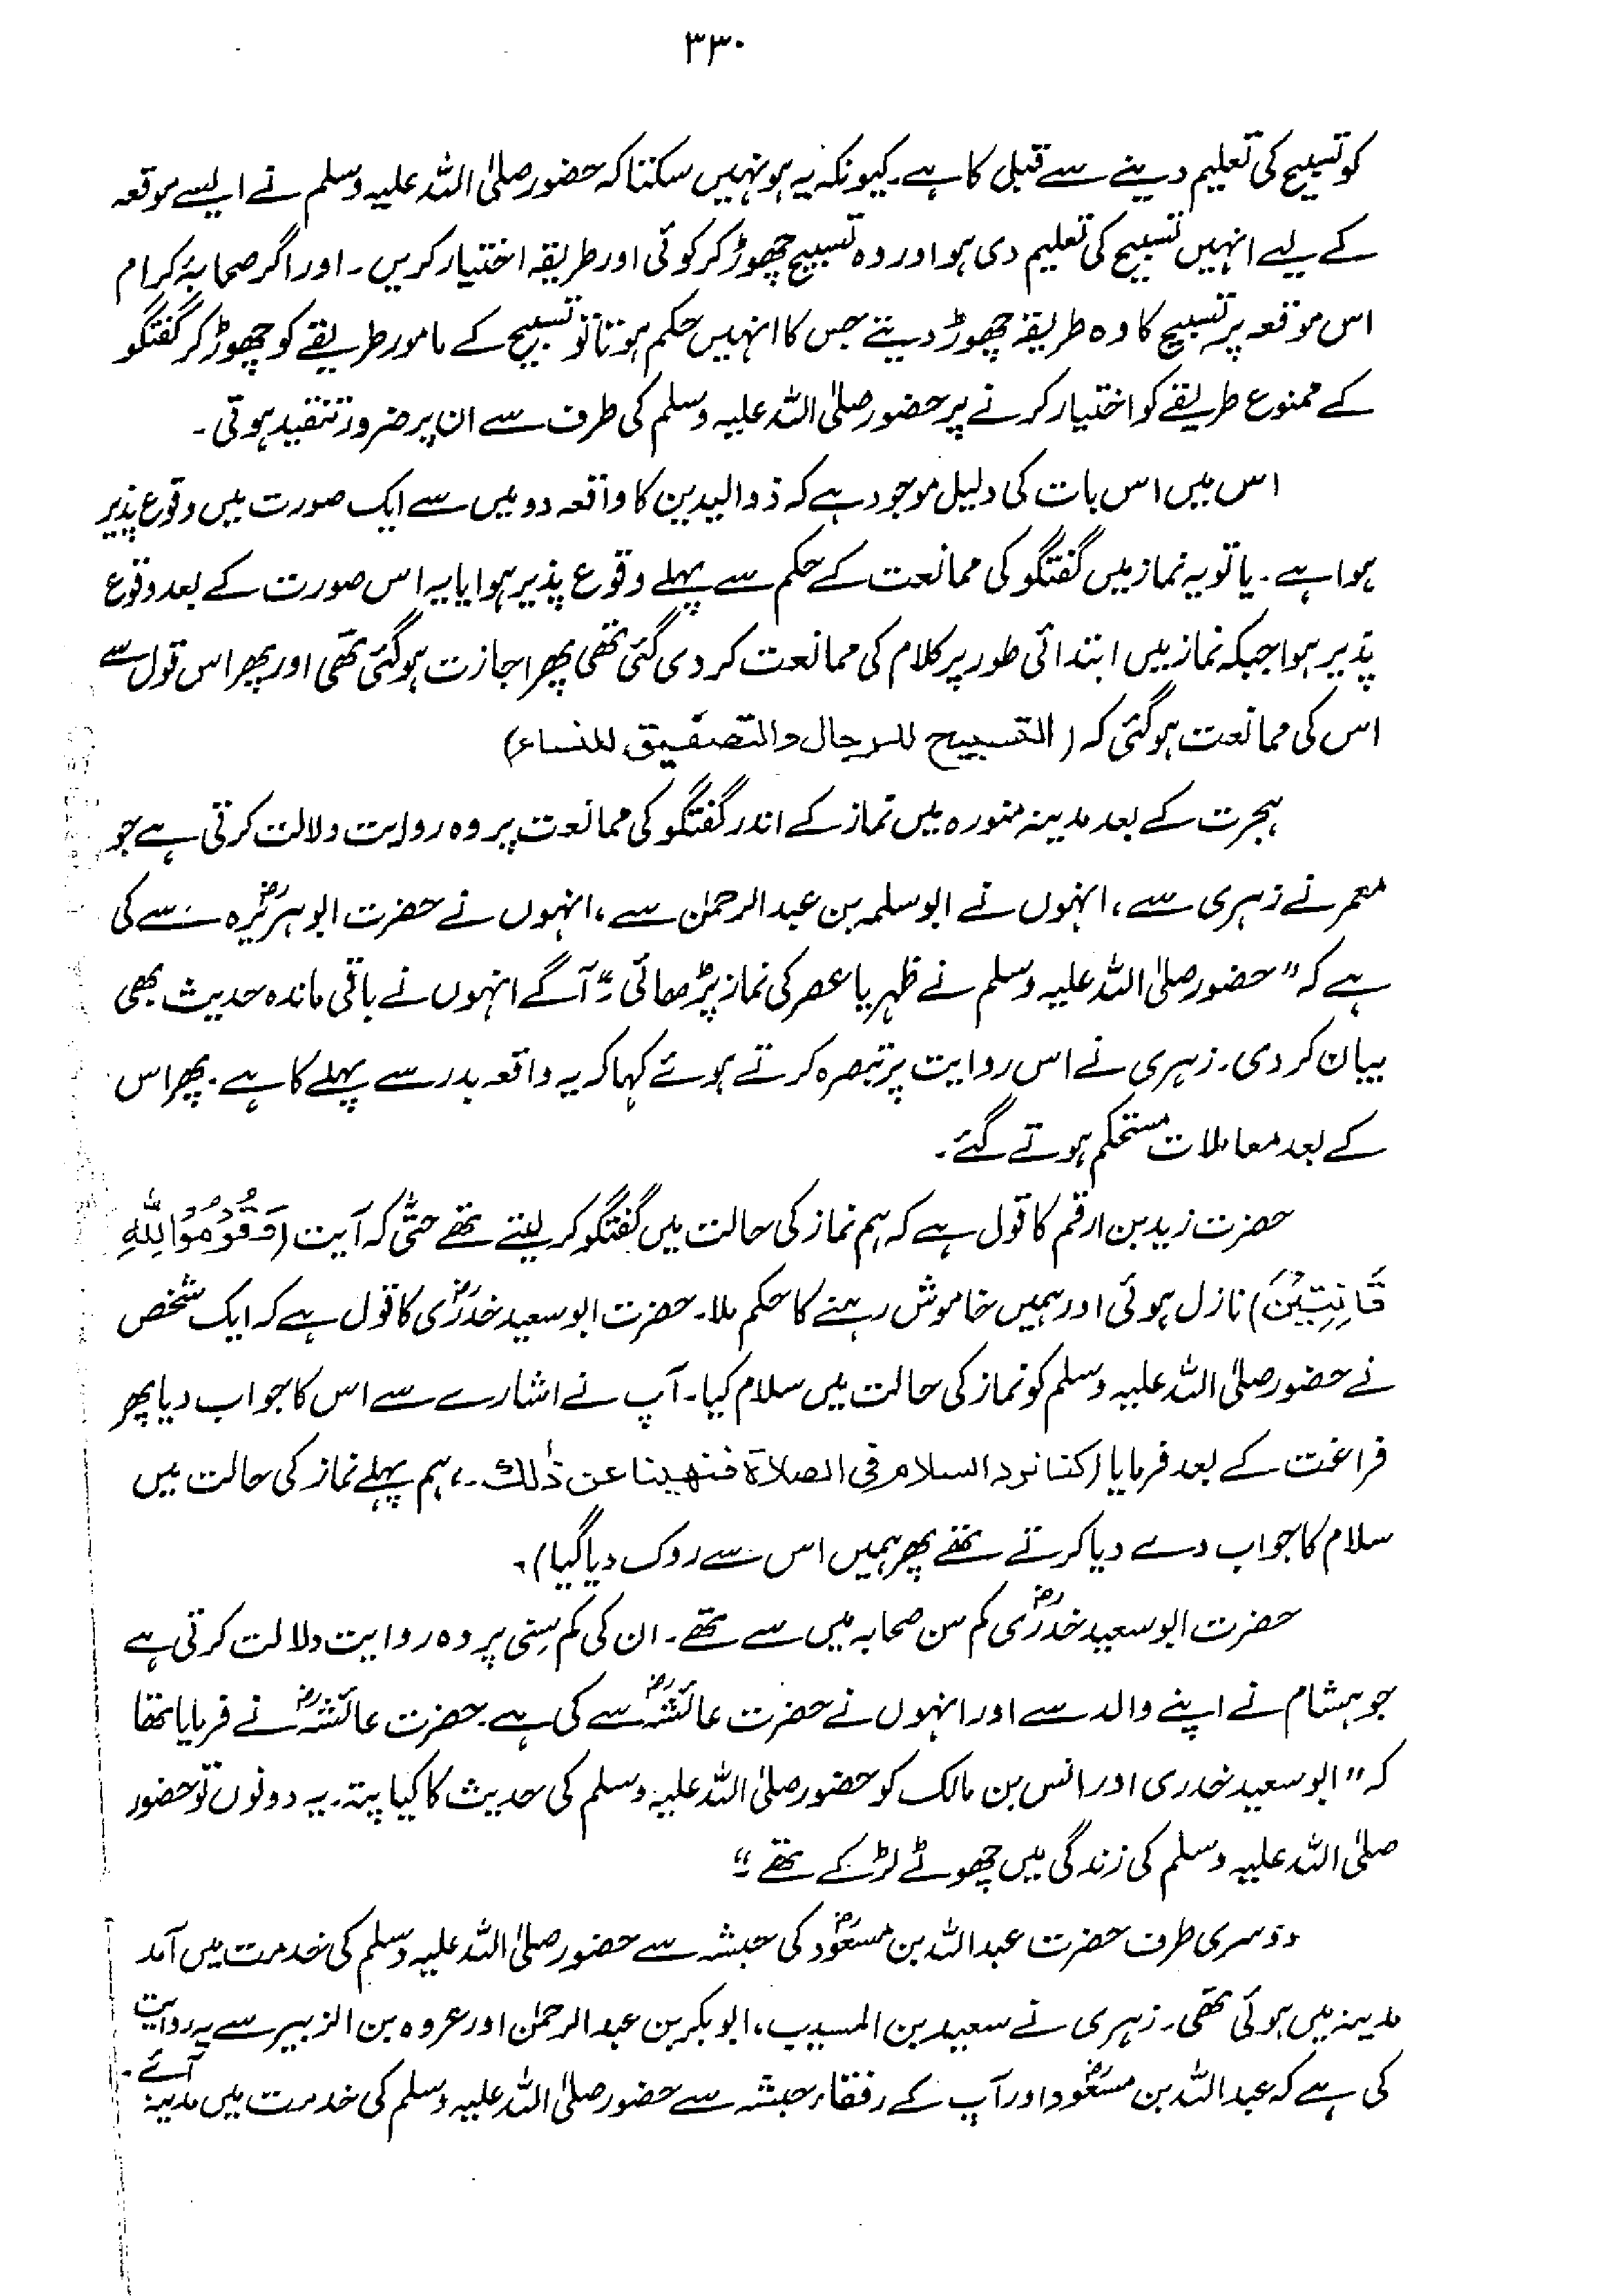 ۳۳۰
کو تسبیح کی تعلیم دینے سے قبل کا ہے۔ کیونکہ یہ ہو نہیں سکتا کہ حضور صلی اللہ علیہ وسلم نے ایسے موقعہ
کے لیے انہیں تسبیح کی تعلیم دی ہو اور وہ تسبیح چھوڑ کر کوئی اور طریقہ اختیار کریں۔ اور اگر صحابۂ کرام
اس موقعہ پر تسبیح کا وہ طریقہ چھوڑ دیتے جس کا انہیں حکم ہوتا تو تسبیح کے مامور طریقے کو چھوڑ کر گفتگو
کے ممنوع طریقے کو اختیار کرنے پر حضور صلی اللہ علیہ وسلم کی طرف سے ان پر ضرور تنقید ہوتی۔
اس میں اس بات کی دلیل موجود ہے کہ ذوالیدین کا واقعہ دو میں سے ایک صورت میں وقوع پذیر
ہوا ہے۔ یا تو یہ نماز میں گفتگو کی ممانعت کے حکم سے پہلے وقوع پذیر ہوا یا یہ اس صورت کے بعد وقوع
پذیر ہوا جبکہ نماز میں ابتدائی طور پر کلام کی ممانعت کر دی گئی تھی پھر اجازت ہو گئی تھی اور پھر اس قول سے
اس کی ممانعت ہو گئی کہ (التسبیح للرجال والتصفیق للنساء)
ہجرت کے بعد مدینہ منورہ میں نماز کے اندر گفتگو کی ممانعت پر وہ روایت دلالت کرتی ہے جو
معمر نے زہری سے، انہوں نے ابوسلمہ بن عبدالرحمٰن سے، انہوں نے حضرت ابوہریرہؓ سے کی
ہے کہ "حضور صلی اللہ علیہ وسلم نے ظہر یا عصر کی نماز پڑھائی۔" آگے انہوں نے باقی ماندہ حدیث بھی
بیان کر دی۔ زہری نے اس روایت پر تبصرہ کرتے ہوئے کہا کہ یہ واقعہ بدر سے پہلے کا ہے۔ پھر اس
کے بعد معاملات مستحکم ہوتے گئے۔
حضرت زید بن ارقم کا قول ہے کہ ہم نماز کی حالت میں گفتگو کر لیتے تھے حتّٰی کہ آیت (وَقُوْمُوْا لِلّٰهِ
قَانِتِيْنَ) نازل ہوئی اور ہمیں خاموش رہنے کا حکم ملا۔ حضرت ابوسعید خدریؓ کا قول ہے کہ ایک شخص
نے حضور صلی اللہ علیہ وسلم کو نماز کی حالت میں سلام کیا۔ آپ نے اشارے سے اس کا جواب دیا پھر
فراغت کے بعد فرمایا (کنا نرد السلام فی الصلاۃ فنھینا عن ذٰلک۔، ہم پہلے نماز کی حالت میں
سلام کا جواب دے دیا کرتے تھے پھر ہمیں اس سے روک دیا گیا)۔
حضرت ابوسعید خدریؓ کم سن صحابہ میں سے تھے۔ ان کی کم سِنی پر وہ روایت دلالت کرتی ہے
جو ہشام نے اپنے والد سے اور انہوں نے حضرت عائشہؓ سے کی ہے۔ حضرت عائشہؓ نے فرمایا تھا
کہ "ابوسعید خدری اور انس بن مالک کو حضور صلی اللہ علیہ وسلم کی حدیث کا کیا پتہ۔ یہ دونوں تو حضور
صلی اللہ علیہ وسلم کی زندگی میں چھوٹے لڑکے تھے۔"
دوسری طرف حضرت عبداللہ بن مسعودؓ کی حبشہ سے حضور صلی اللہ علیہ وسلم کی خدمت میں آمد
مدینہ میں ہوئی تھی۔ زہری نے سعید بن المسیب، ابوبکر بن عبدالرحمٰن اور عروہ بن الزبیر سے یہ روایت
کی ہے کہ عبداللہ بن مسعودؓ اور آپ کے رفقاء حبشہ سے حضور صلی اللہ علیہ وسلم کی خدمت میں مدینہ آئے۔